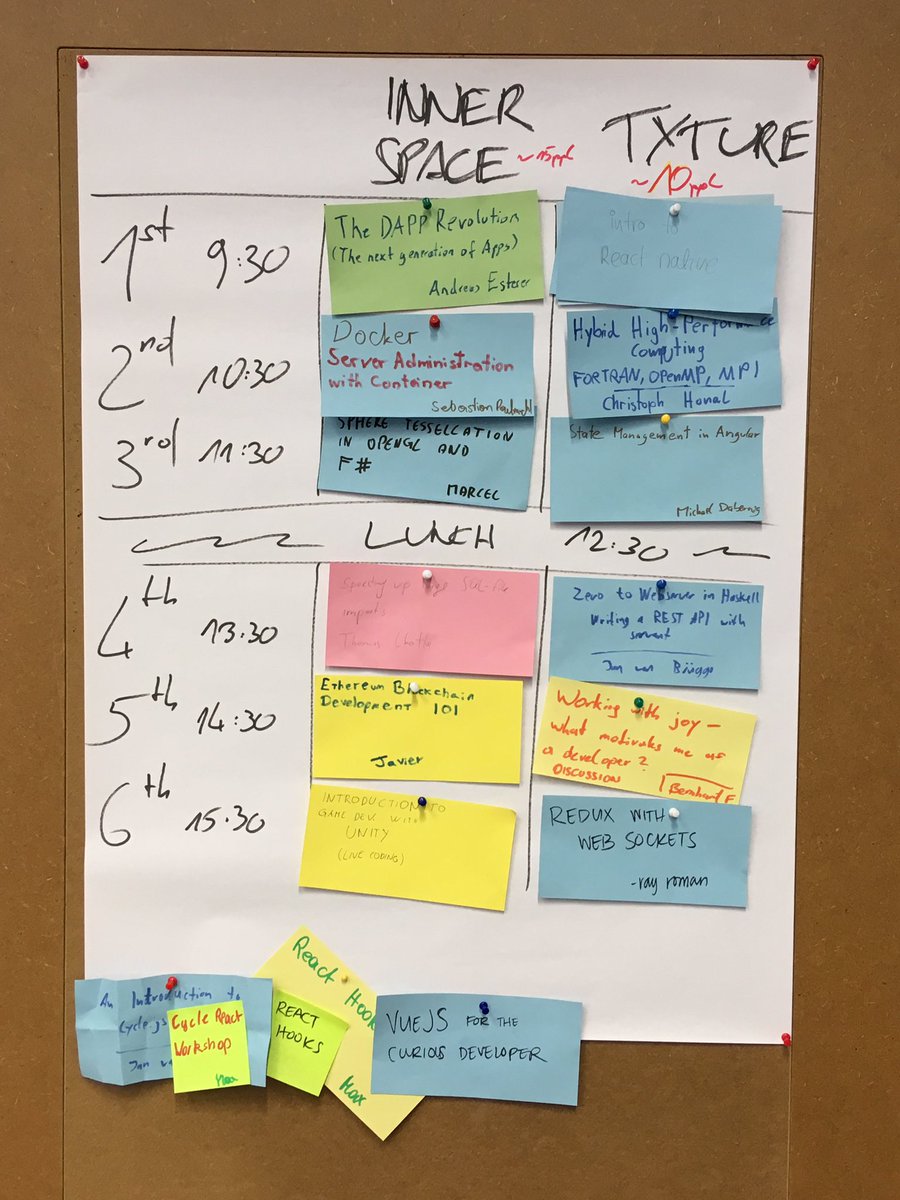 INNER
SPACE ~15ppl
TXTURE
~10ppl
1st 9:30
The DAPP Revolution
(The next generation of Apps)
Andreas
intro to
React native
2nd 10:30
Docker
Server Administration
with Container
Sebastian
Hybrid High-Performance
Computing
FORTRAN, OpenMP, MPI
Christoph Honal
3rd 11:30
SPHERE TESSELLATION
IN OPENGL AND
F#
MARCEL
State Management in Angular
Michael
LUNCH 12:30
4th 13:30
Speeding up SQL-file
imports
Thomas
Zero to Webserver in Haskell
Writing a REST API with
servant
Jan van Brügge
5th 14:30
Ethereum Blockchain
Development 101
Javier
Working with joy –
what motivates me as
a developer?
DISCUSSION
Bernhard F
6th 15:30
INTRODUCTION TO
GAME DEV WITH
UNITY
(LIVE CODING)
REDUX WITH
WEB SOCKETS
-ray roman
An Introduction to
Cycle.js
Jan
Cycle React
Workshop
REACT
HOOKS
React Hooks
VUEJS FOR THE
CURIOUS DEVELOPER